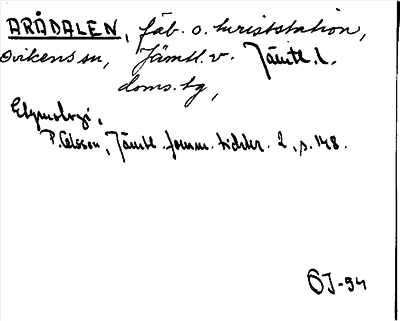 ARÅDALEN, fäb. o. turiststation,
Ovikens sn, Jämtl. v. Jämtl. l.
doms. tg,
Etymologi,
P. Olsson, Jämtl. fornm. tidskr. 2, s. 148.
OJ-54